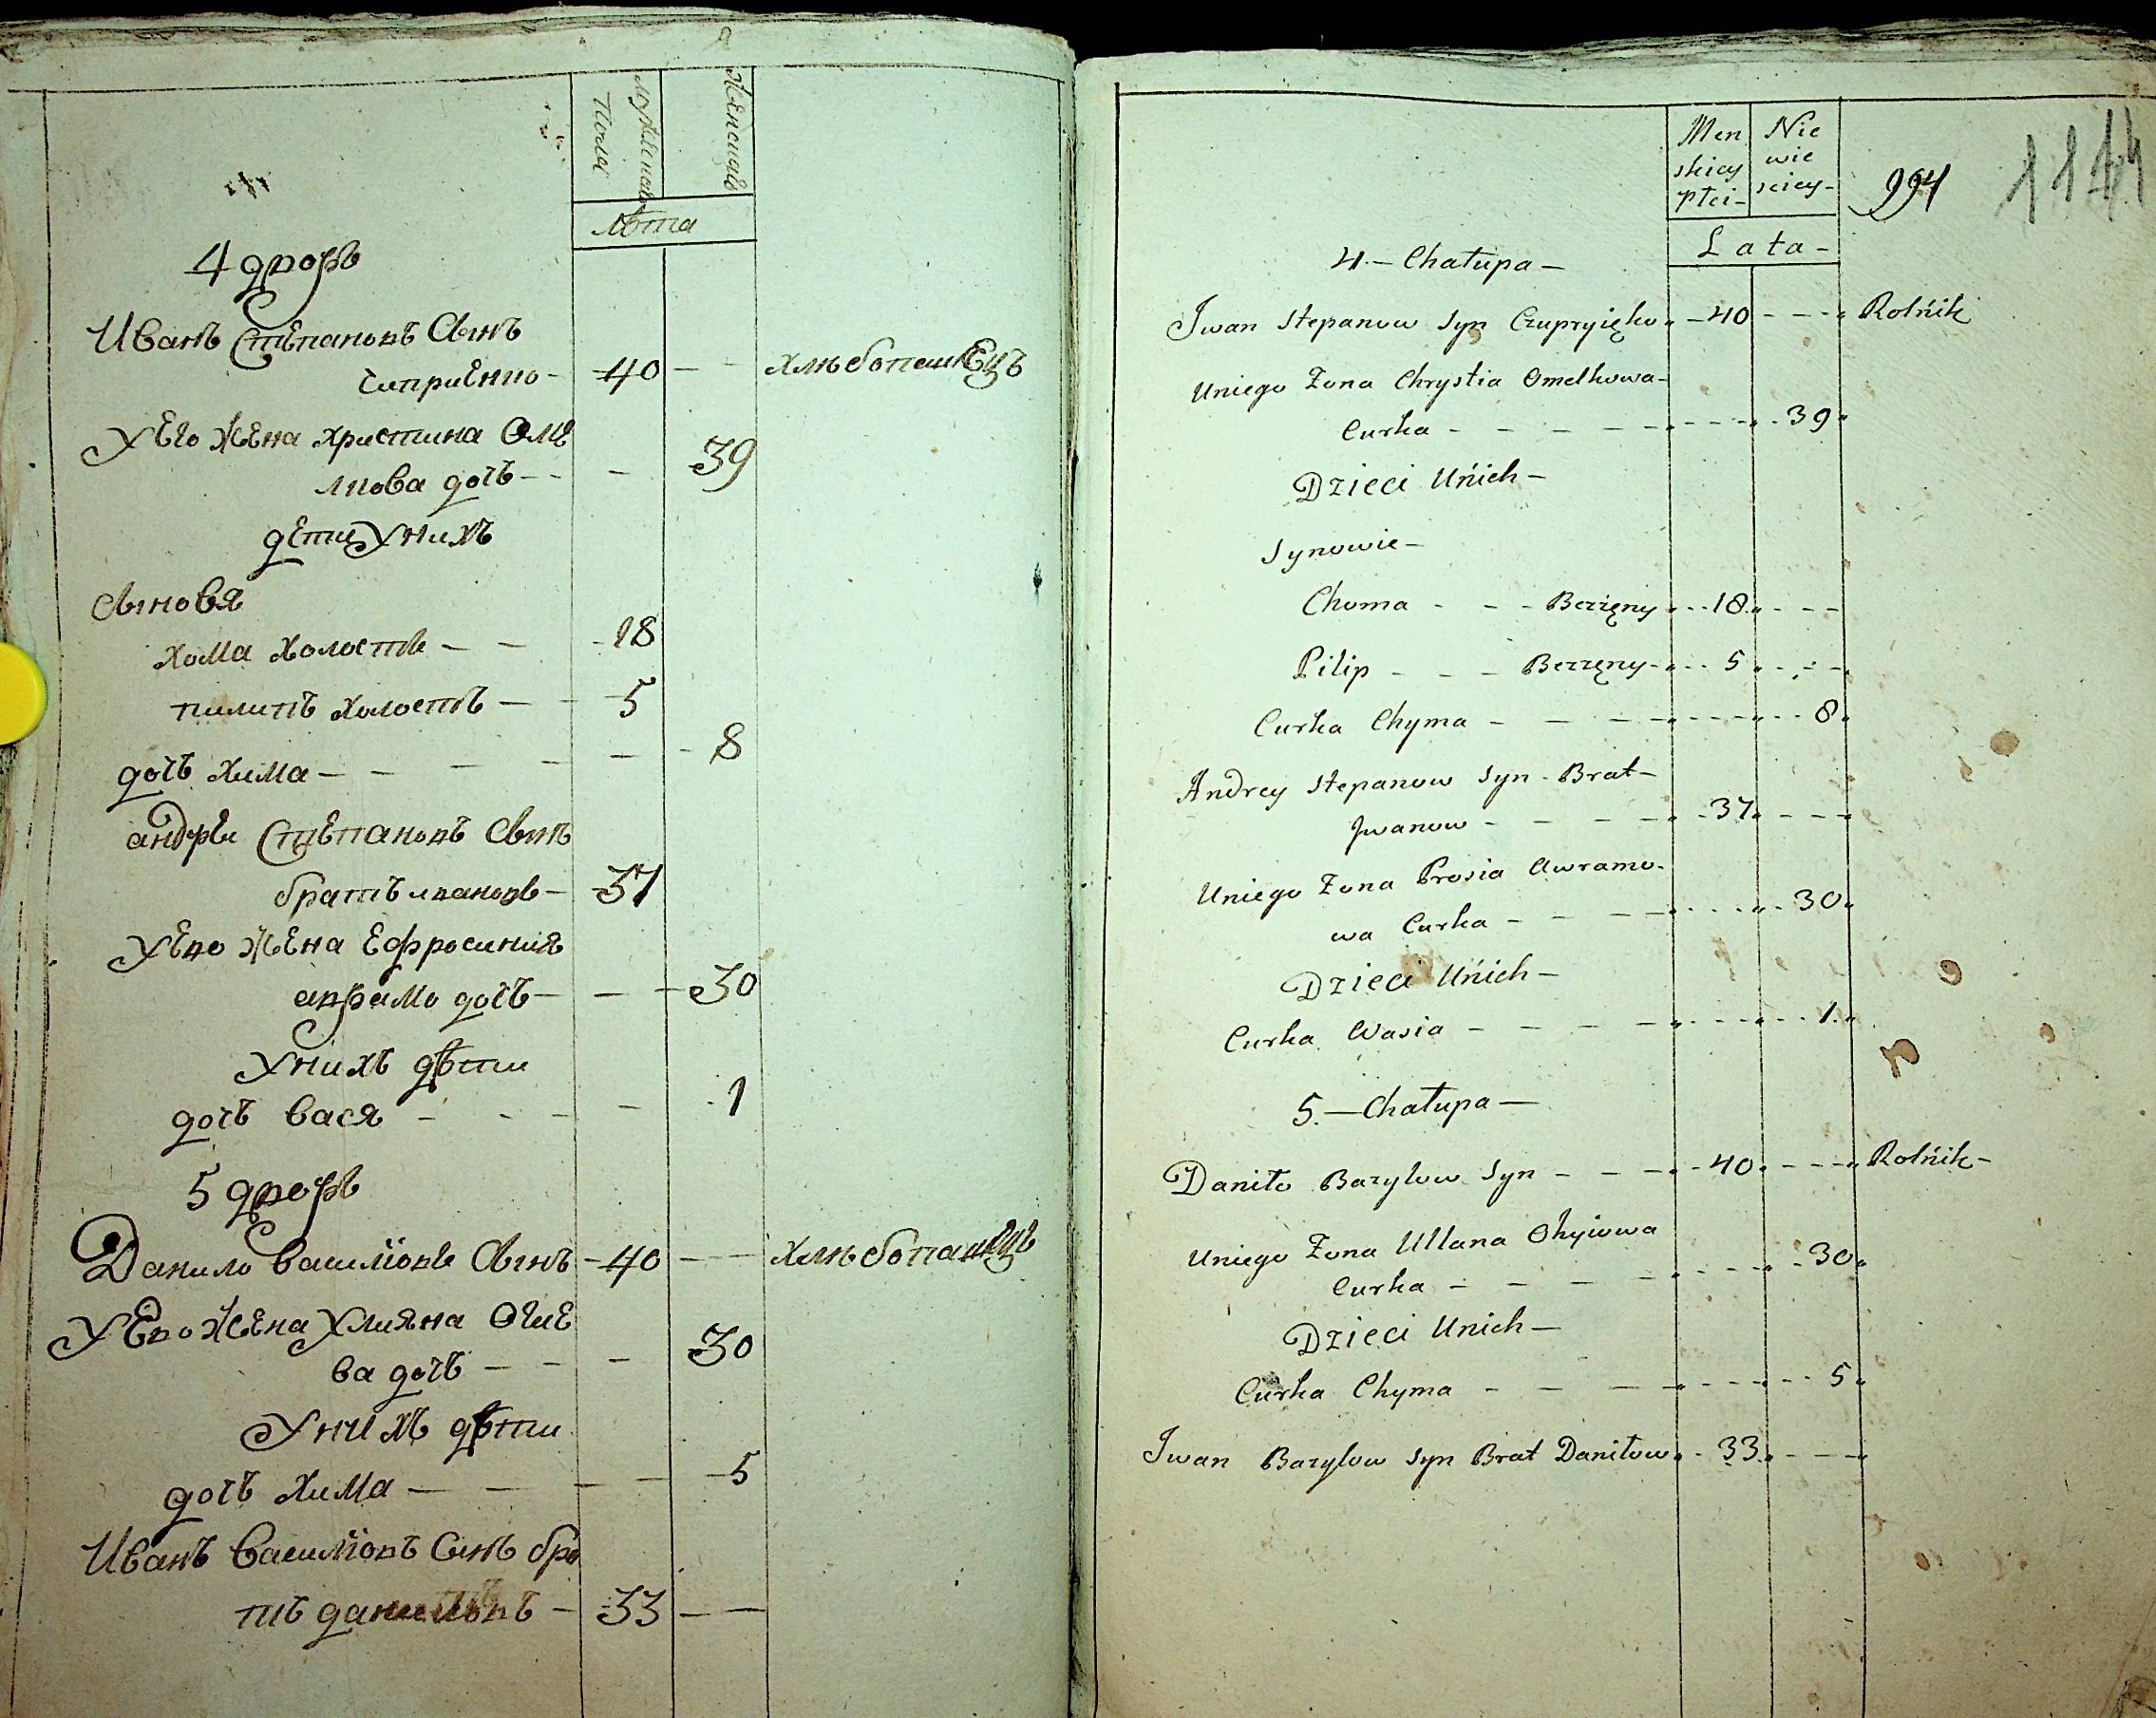 мужеска
Пола
Женскаго
Лѣта
4 дворъ
Иванъ Степановъ Сынъ
Чиприенко - 40 - - хлѣбопашецъ
У Его Жена христина Оме
лкова дочъ - - - 39
дети У нихъ
Сыновя
хома холостъ - - 18
пилипъ холостъ - - 5
дочъ хима - - - - - 8
андрѣи Степановъ Сынъ
братъ ивановъ - 37
У Его Жена Ефросиния
аврамо дочъ - - - 30
У нихъ дѣти
дочъ Вася - - - - 1
5 дворъ
Данило Василіовъ Сынъ - 40 - - хлѣбопашецъ
У Его Жена Улияна Огие
ва дочъ - - - 30
У нихъ дѣти
дочъ хима - - - - 5
Иванъ Василіовъ Синъ бра
тъ даниловъ - 33 - -
Men Nie
skiey wie
płci - sciey -
994 1144
Lata -
4. - Chałupa -
Jwan Stepanow Syn Czupryięko - 40 - - - Rolńik
Uniego Zona Chrystia Omelkowa -
Curka - - - - - - 39
Dzieci Uńich -
Synowie -
Choma - - - Bezzęny - - 18 - - -
Pilip - - - Bezzęny - - 5 - - -
Curka Chyma - - - - - - 8
Andrey Stepanow Syn - Brat -
Jwanow - - - - - 37 - - -
Uniego Zona Prosia Awramo -
wa Curka - - - - - - 30
Dzieci Uńich -
Curka Wasia - - - - - - 1
5. - Chałupa -
Daniło Bazylow Syn - - - - 40 - - - Rolńik -
Uniego Zona Ullana Ohyiowa
Curka - - - - - - 30
Dzieci Unich -
Curka Chyma - - - - - - 5
Jwan Bazylow Syn Brat Daniłow - 33 - - -